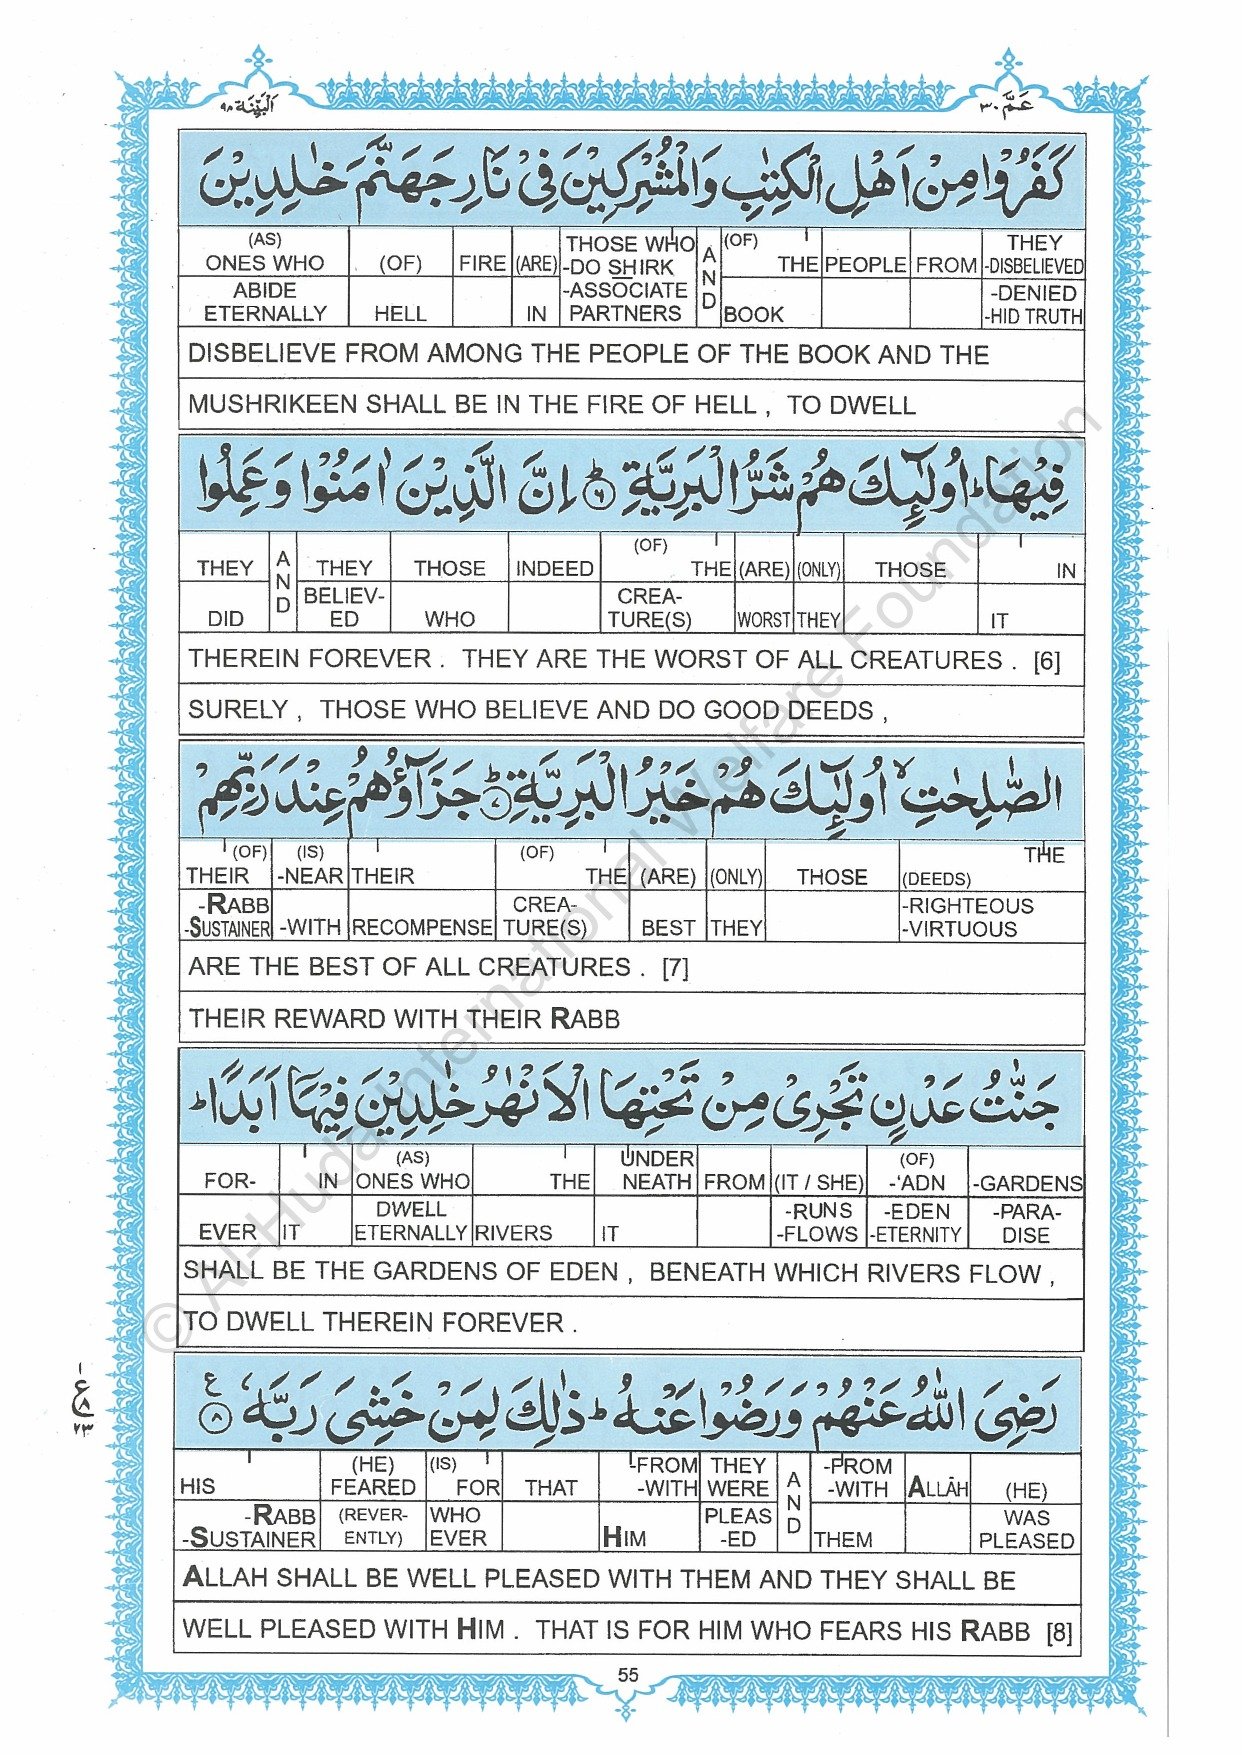 اَلْبَيِّنَة ٩٨ عَمَّ ٣٠
كَفَرُوْا مِنْ اَهْلِ الْكِتٰبِ وَالْمُشْرِكِيْنَ فِيْ نَارِ جَهَنَّمَ خٰلِدِيْنَ
(AS) ONES WHO (OF) FIRE (ARE) THOSE WHO -DO SHIRK AND (OF) THE PEOPLE FROM THEY -DISBELIEVED
ABIDE ETERNALLY HELL IN -ASSOCIATE PARTNERS BOOK -DENIED -HID TRUTH
DISBELIEVE FROM AMONG THE PEOPLE OF THE BOOK AND THE
MUSHRIKEEN SHALL BE IN THE FIRE OF HELL , TO DWELL
فِيْهَا ؕ اُولٰٓئِكَ هُمْ شَرُّ الْبَرِيَّةِ ؕ ٦ اِنَّ الَّذِيْنَ اٰمَنُوْا وَعَمِلُوا
THEY AND THEY THOSE INDEED (OF) THE (ARE) (ONLY) THOSE IN
DID BELIEV-ED WHO CREA-TURE(S) WORST THEY IT
THEREIN FOREVER . THEY ARE THE WORST OF ALL CREATURES . [6]
SURELY , THOSE WHO BELIEVE AND DO GOOD DEEDS ,
الصّٰلِحٰتِ ۙ اُولٰٓئِكَ هُمْ خَيْرُ الْبَرِيَّةِ ؕ ٧ جَزَآؤُهُمْ عِنْدَ رَبِّهِمْ
THEIR (OF) (IS) -NEAR THEIR (OF) THE (ARE) (ONLY) THOSE THE (DEEDS)
-RABB -SUSTAINER -WITH RECOMPENSE CREA-TURE(S) BEST THEY -RIGHTEOUS -VIRTUOUS
ARE THE BEST OF ALL CREATURES . [7]
THEIR REWARD WITH THEIR RABB
جَنّٰتُ عَدْنٍ تَجْرِيْ مِنْ تَحْتِهَا الْاَنْهٰرُ خٰلِدِيْنَ فِيْهَآ اَبَدًا ؕ
FOR- IN (AS) ONES WHO THE UNDER NEATH FROM (IT / SHE) (OF) -'ADN -GARDENS
EVER IT DWELL ETERNALLY RIVERS IT -RUNS -FLOWS -EDEN -ETERNITY -PARA-DISE
SHALL BE THE GARDENS OF EDEN , BENEATH WHICH RIVERS FLOW ,
TO DWELL THEREIN FOREVER .
رَضِيَ اللّٰهُ عَنْهُمْ وَرَضُوْا عَنْهُ ؕ ذٰلِكَ لِمَنْ خَشِيَ رَبَّهٗ ٨ ع
HIS (HE) FEARED (IS) FOR THAT -FROM -WITH THEY WERE AND -FROM -WITH ALLĀH (HE)
-RABB -SUSTAINER (REVER-ENTLY) WHO EVER HIM PLEAS-ED THEM WAS PLEASED
ALLAH SHALL BE WELL PLEASED WITH THEM AND THEY SHALL BE
WELL PLEASED WITH HIM . THAT IS FOR HIM WHO FEARS HIS RABB [8]
١
ع
٨
٢٣
55
© Al-Huda International Welfare Foundation